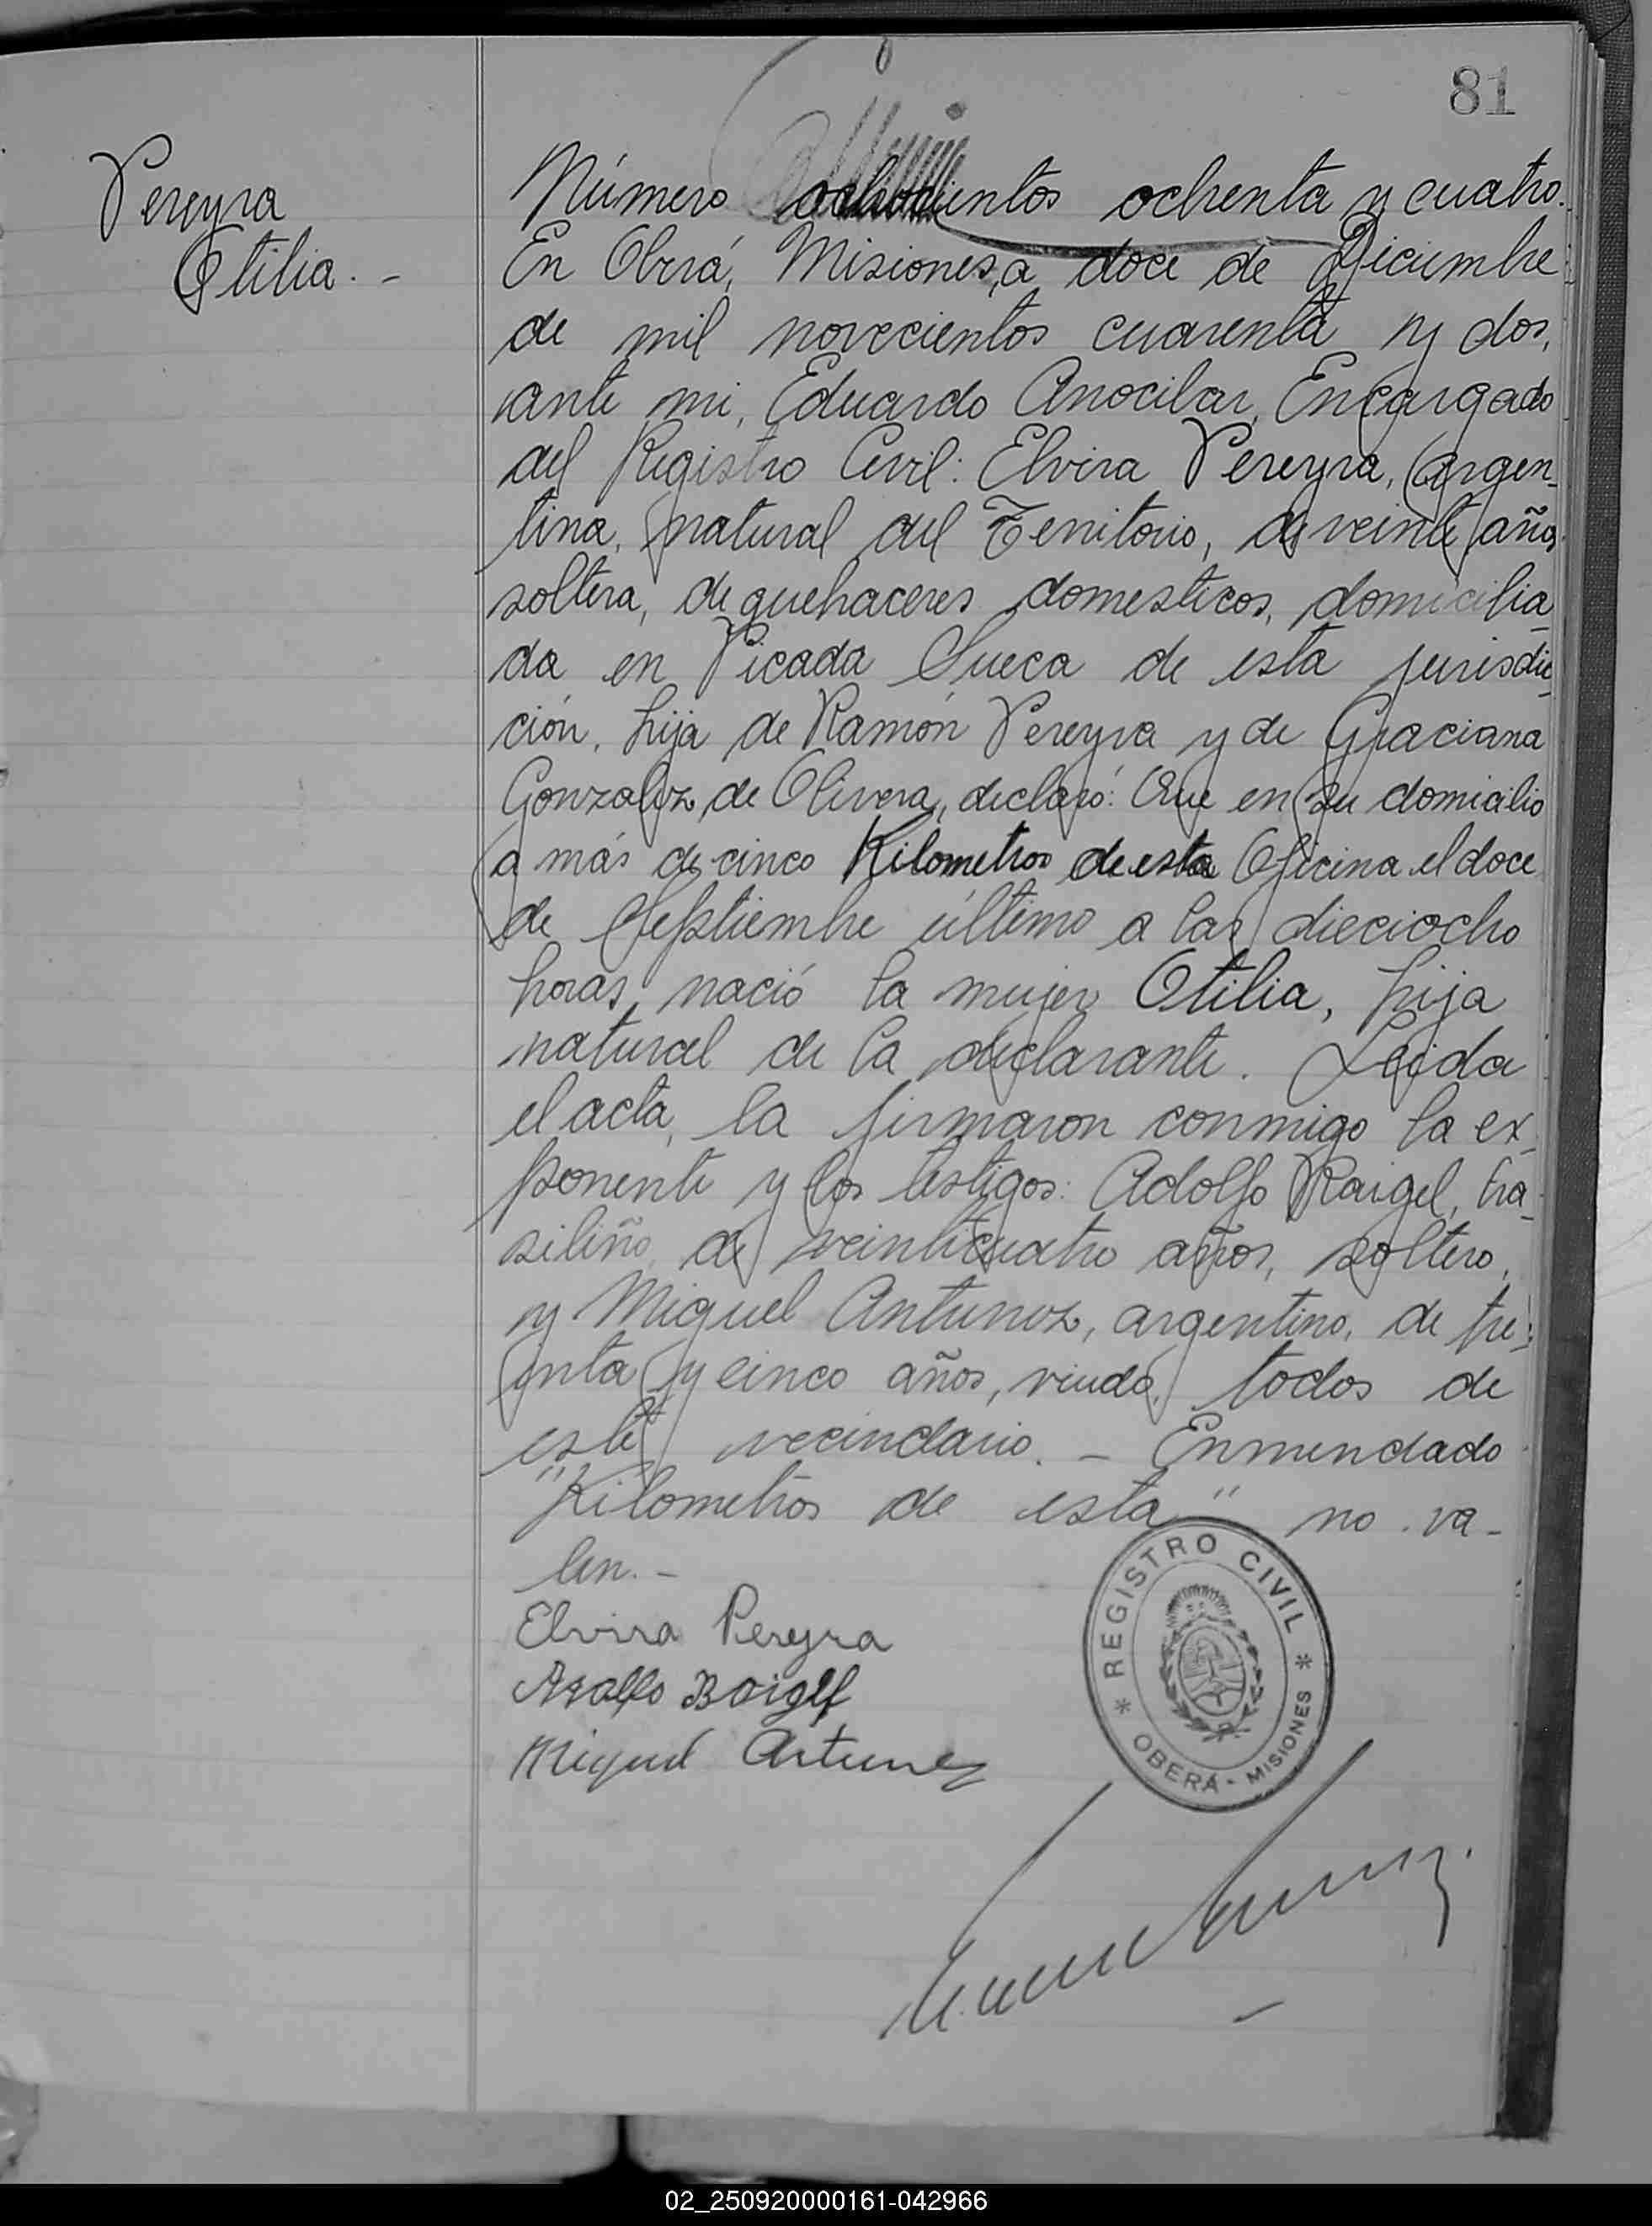 81
Pereyra
Otilia. -
Número ochocientos ochenta y cuatro.
En Oberá, Misiones, a doce de Diciembre
de mil novecientos cuarenta y dos,
ante mi, Eduardo Anocibar, Encargado
del Registro Civil: Elvira Pereyra, argen-
tina, natural del Territorio, de veinte años
soltera, de quehaceres domesticos, domicilia-
da en Picada Sueca de esta jurisdic-
ción, hija de Ramón Pereyra y de Graciana
Gonzalez de Olivera, declaró: Que en su domicilio
a más de cinco Kilometros de esta Oficina el doce
de Septiembre último a las dieciocho
horas, nació la mujer Otilia, hija
natural de la declarante. Leida
el acta, la firmaron conmigo la ex-
ponente y los testigos: Adolfo Raigel, bra-
siliño, de veinticuatro años, soltero,
y Miguel Antunez, argentino, de tre-
inta y cinco años, viudo, todos de
este vecindario. - Enmendado
"Kilometros de esta" no va-
len. -
Elvira Pereyra
Adolfo
Miguel Antunez
* REGISTRO CIVIL *
OBERÁ - MISIONES
02_250920000161-042966